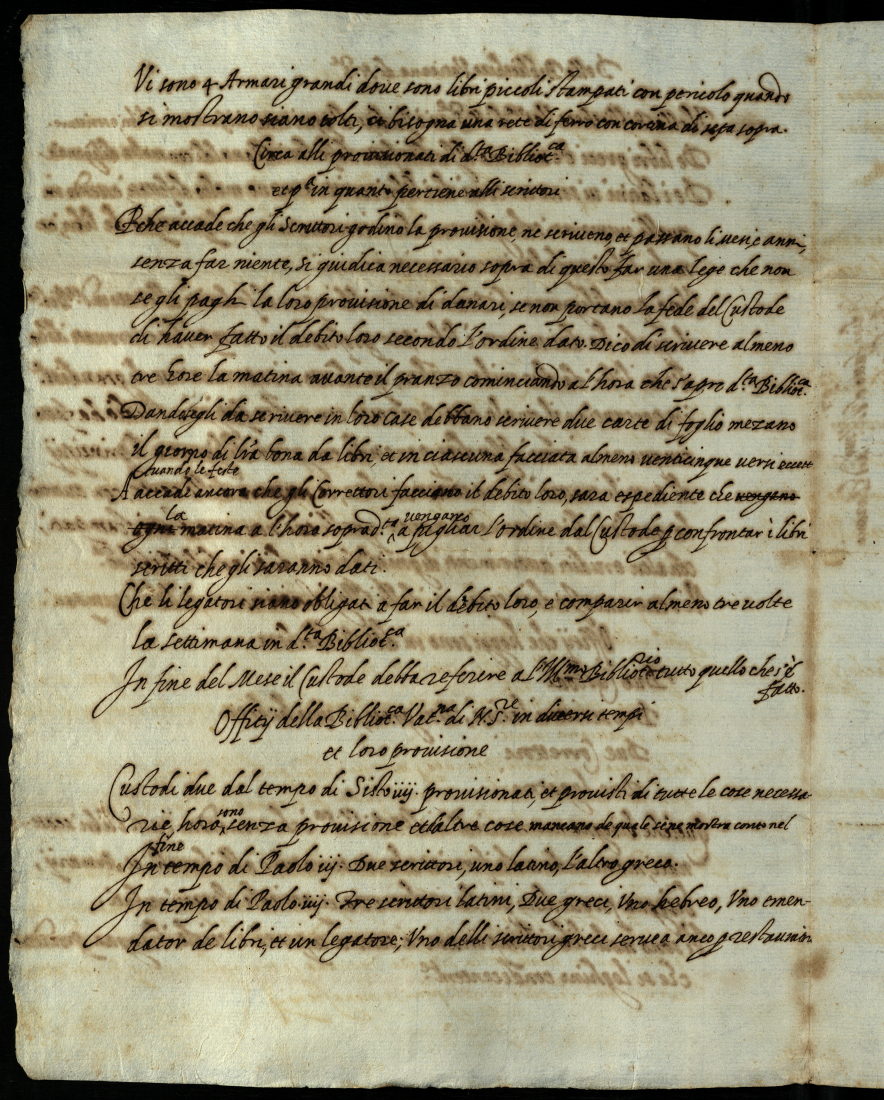 Vi sono 4 Armari grandi dove sono libri piccoli stampati con pericolo quando
si mostrano siano tolti, ci bisogna una rete di ferro con cortina di seta sopra.
Circa alli provisionati di d.ta Bibliot.ca
et p.a in quanto pertiene alli scrittori
Perche accade che gli Scrittori godino la provisione, ne scriveno, et passano li mesi, e anni,
senza far niente, si giudica necessario sopra di questo far una lege che non
se gli paghi la loro provisione di danari, se non portano la fede del Custode
di haver fatto il debito loro secondo l'ordine dato. Dico di scrivere almeno
tre hore la matina avante il pranzo cominciando al'hora che s'apre d.ta Bibliot.ca
Dandosegli da scrivere in loro case debbano scrivere due carte di foglio mezano
il giorno di l'ra bona da libri, et in ciascuna facciata almeno venticinque versi eccett
tuando le feste
Accade ancora che gli Correttori facciano il debito loro, sara espediente che vengano
la vengano
ogni matina a l'hora soprad.ta a pigliar l'ordine dal Custode p confrontar i libri
scritti che gli saranno dati.
Che li legatori siano obligati a far il debito loro, e comparir almeno tre volte
la settimana in d.ta Bibliot.ca
In fine del Mese il Custode debba referire a l'Ill.mo Bibliotecario tutto quello che s'è
fatto.
Officij della Bibliot.ca Vat.na di N. S.re in diversi tempi
et loro provisione
Custodi due dal tempo di Sisto iiij. provisionati, et provisti di tutte le cose necessa-
sono
rie, hora senza provisione et l'altre cose mancano de quale se ne mostra conto nel
fine
In tempo di Paolo iij. Due scrittori, uno latino, l'altro greco.
In tempo di Paolo iiij. Tre scrittori latini, Due greci, Uno hebreo, Uno emen-
dator de libri, et un legatore; Uno delli scrittori greci serve a anco p restaurar